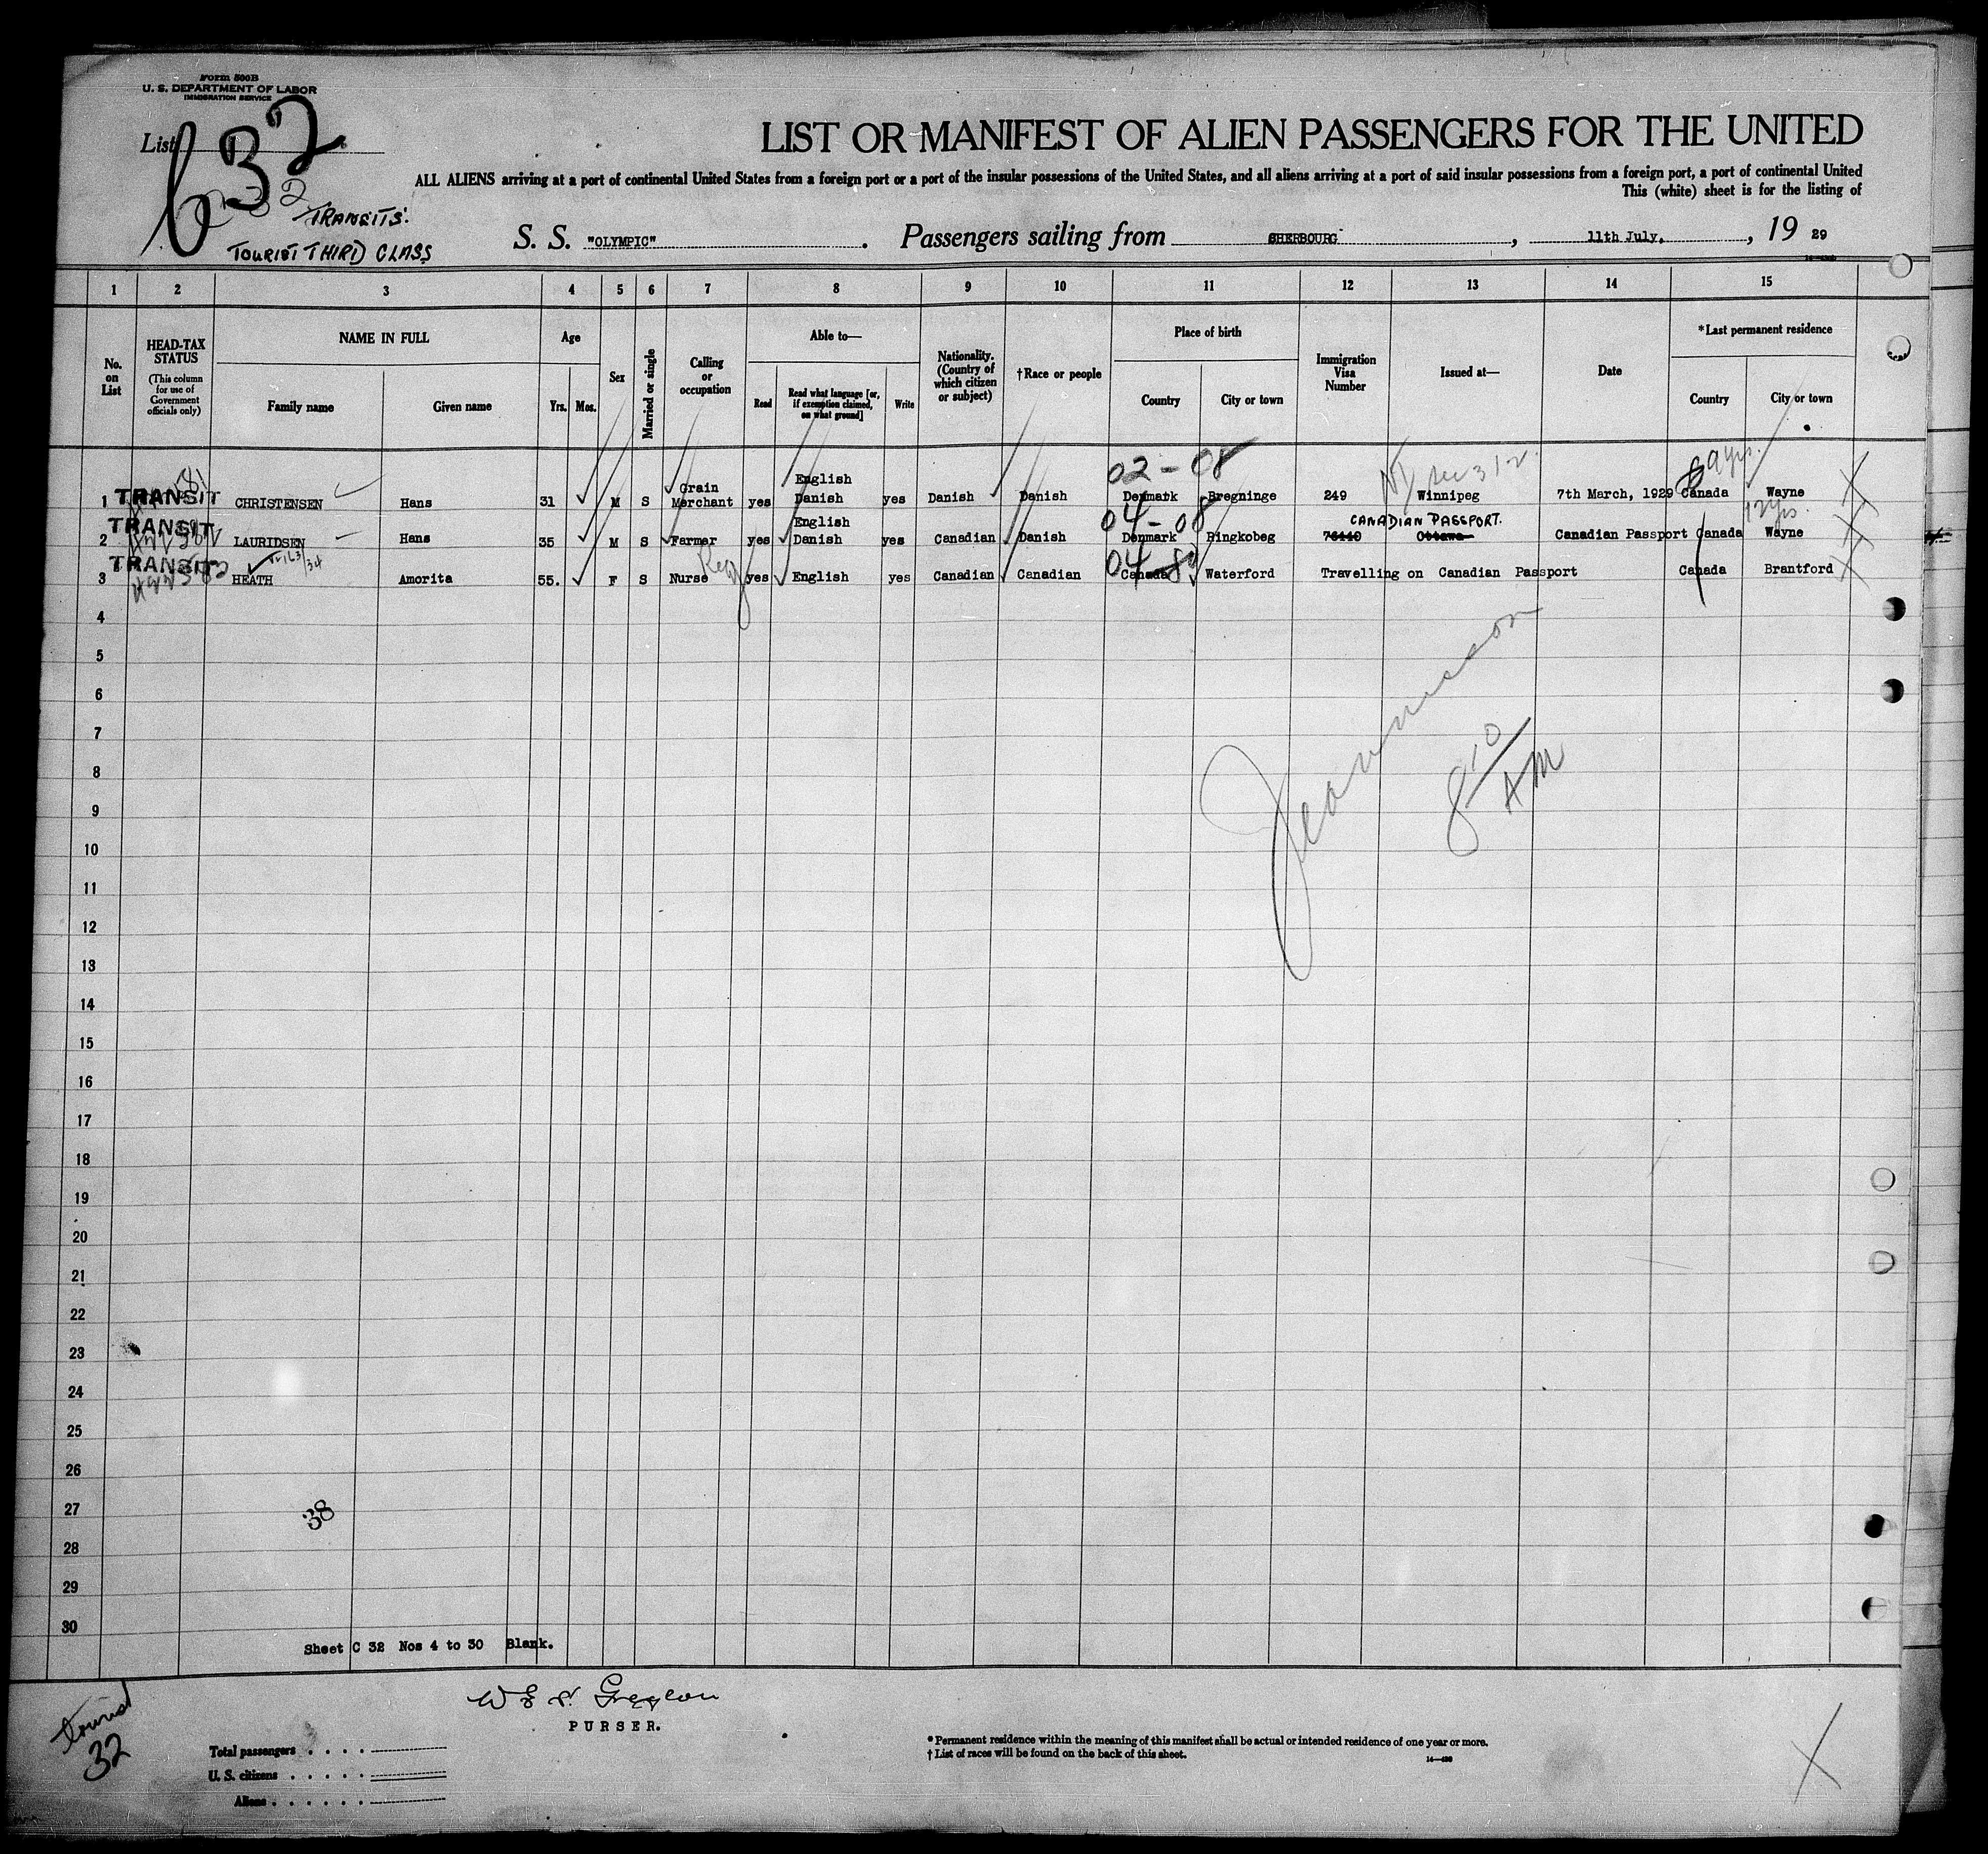 Form 500B
U. S. DEPARTMENT OF LABOR
IMMIGRATION SERVICE
List 632
TRANSITS.
TOURIST THIRD CLASS
LIST OR MANIFEST OF ALIEN PASSENGERS FOR THE UNITED
ALL ALIENS arriving at a port of continental United States from a foreign port or a port of the insular possessions of the United States, and all aliens arriving at a port of said insular possessions from a foreign port, a port of continental United
This (white) sheet is for the listing of
S. S. "OLYMPIC". Passengers sailing from CHERBOURG, 11th July, 1929
1 2 3 4 5 6 7 8 9 10 11 12 13 14 15
No. on List
HEAD-TAX STATUS (This column for use of Government officials only)
NAME IN FULL
Family name Given name
Age
Yrs. Mos.
Sex
Married or single
Calling or occupation
Able to—
Read Read what language [or, if exemption claimed, on what ground] Write
Nationality. (Country of which citizen or subject)
†Race or people
Place of birth
Country City or town
Immigration Visa Number
Issued at—
Date
*Last permanent residence
Country City or town
02-08 9 yrs.
1 TRANSIT CHRISTENSEN Hans 31 M S Grain Merchant yes English Danish yes Danish Danish Denmark Bregninge 249 Winnipeg 7th March, 1929 Canada Wayne
04-08 CANADIAN PASSPORT. 12 yrs.
2 TRANSIT LAURIDSEN Hans 35 M S Farmer yes English Danish yes Canadian Danish Denmark Ringkobeg 76440 Ottawa Canadian Passport Canada Wayne
3 TRANSIT HEATH Amorita 55. F S Nurse yes English yes Canadian Canadian Canada Waterford Travelling on Canadian Passport Canada Brantford
4
5
6
7
8
8 10 AM
9
10
11
12
13
14
15
16
17
18
19
20
21
22
23
24
25
26
27
38
28
29
30
Sheet C 32 Nos 4 to 30 Blank.
PURSER.
Tourist
32
Total passengers
U. S. citizens
Aliens
*Permanent residence within the meaning of this manifest shall be actual or intended residence of one year or more.
†List of races will be found on the back of this sheet.